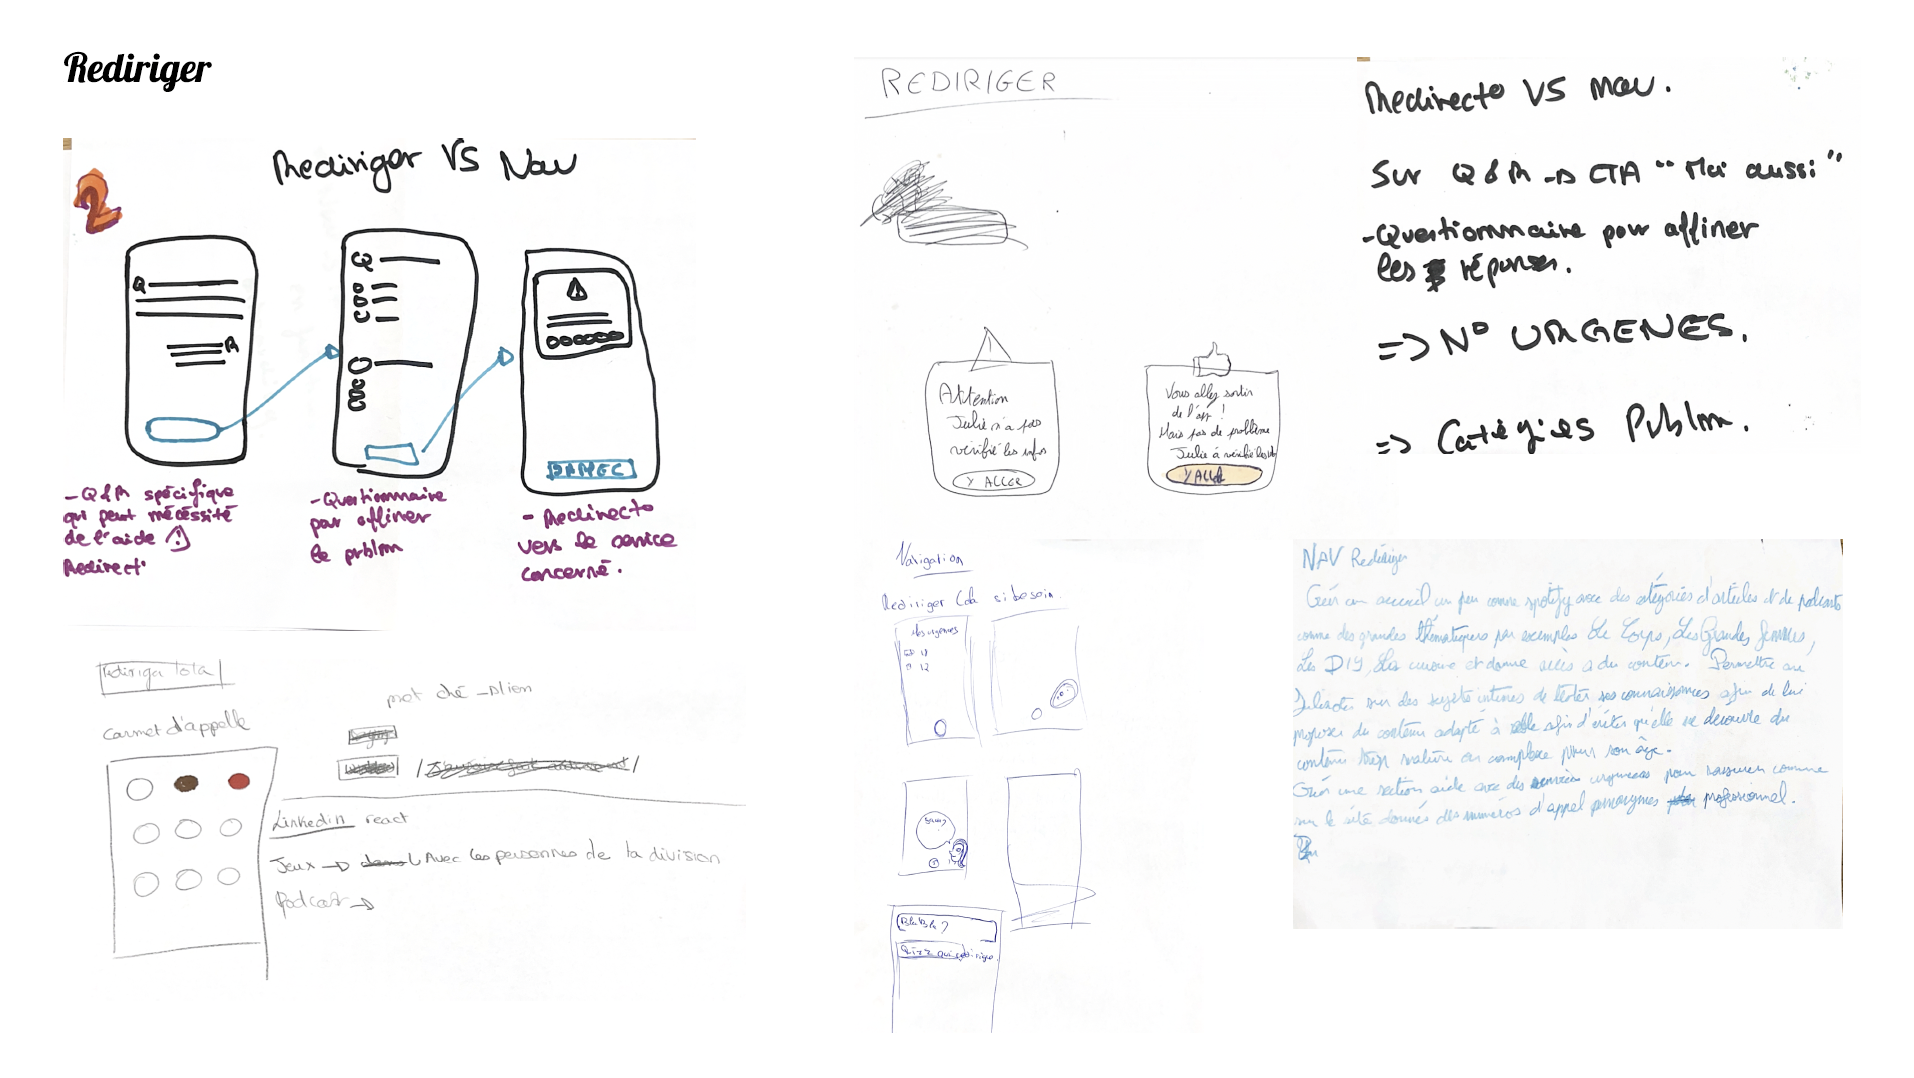 Rediriger
2
Rediriger VS Nav
Q
R
Q
- Q&R spécifique
qui peut nécéssité
de l'aide
Redirect°
- Questionnaire
pour affiner
le prblm
- Redirecto
vers le service
concerné.
REDIRIGER
Attention
Julie n'a pas
vérifié les infos
Y ALLER
Vous allez sortir
de l'app !
Mais pas de problème
Julie à vérifié les
Y ALLER
Redirecto VS Nav.
Sur Q&R → CTA "Moi aussi"
- Questionnaire pour affiner
les réponses.
=> N° URGENES.
=> Catégies Prblm.
carnet d'appelle
mot clé → lien
Linkedin react
Jeux → Avec les personnes de ta division
Podcast →
Navigation
Rediriger Cda si besoin.
Nos urgences
18
12
BlaBla ?
Quizz qui redirige.
NAV Rediriger
Créer un accueil un peu comme spotify avec des catégories d'articles et de podcasts
comme des grandes thématiques par exemples Le Corps, Les Grandes femmes,
Les DIY, La cuisine et donne accès a du contenu. Permettre au
sur des sujets intimes de tester ses connaissances afin de lui
proposer du contenu adapté à elle afin d'éviter qu'elle ne découvre du
contenu trop mature ou complexe pour son âge.
Créer une section aide avec des services urgences pour rassurer comme
sur le site donnés des numéros d'appel anonymes professionnel.